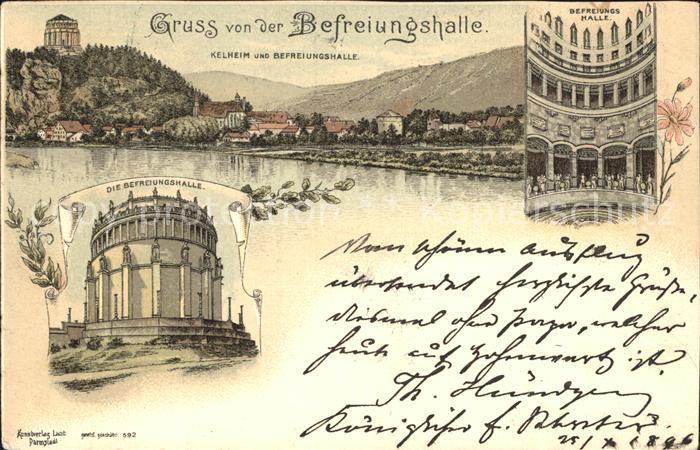 Gruss von der Befreiungshalle.
KELHEIM UND BEFREIUNGSHALLE.
BEFREIUNGS
HALLE.
DIE BEFREIUNGSHALLE.
Vom schönen Ausflug
übersendet herzlichste Grüße,
diesmal ohne Papa, welcher
heute auf
ist.
Th.
Kunstverlag Lautz
Darmstadt
gesetzl. geschützt 592
25/X 1896